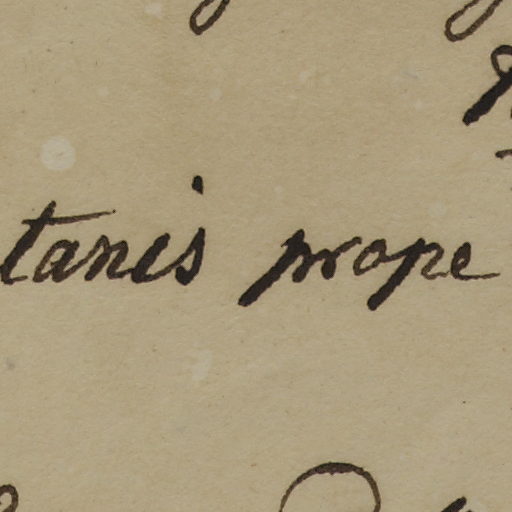 tanis prope